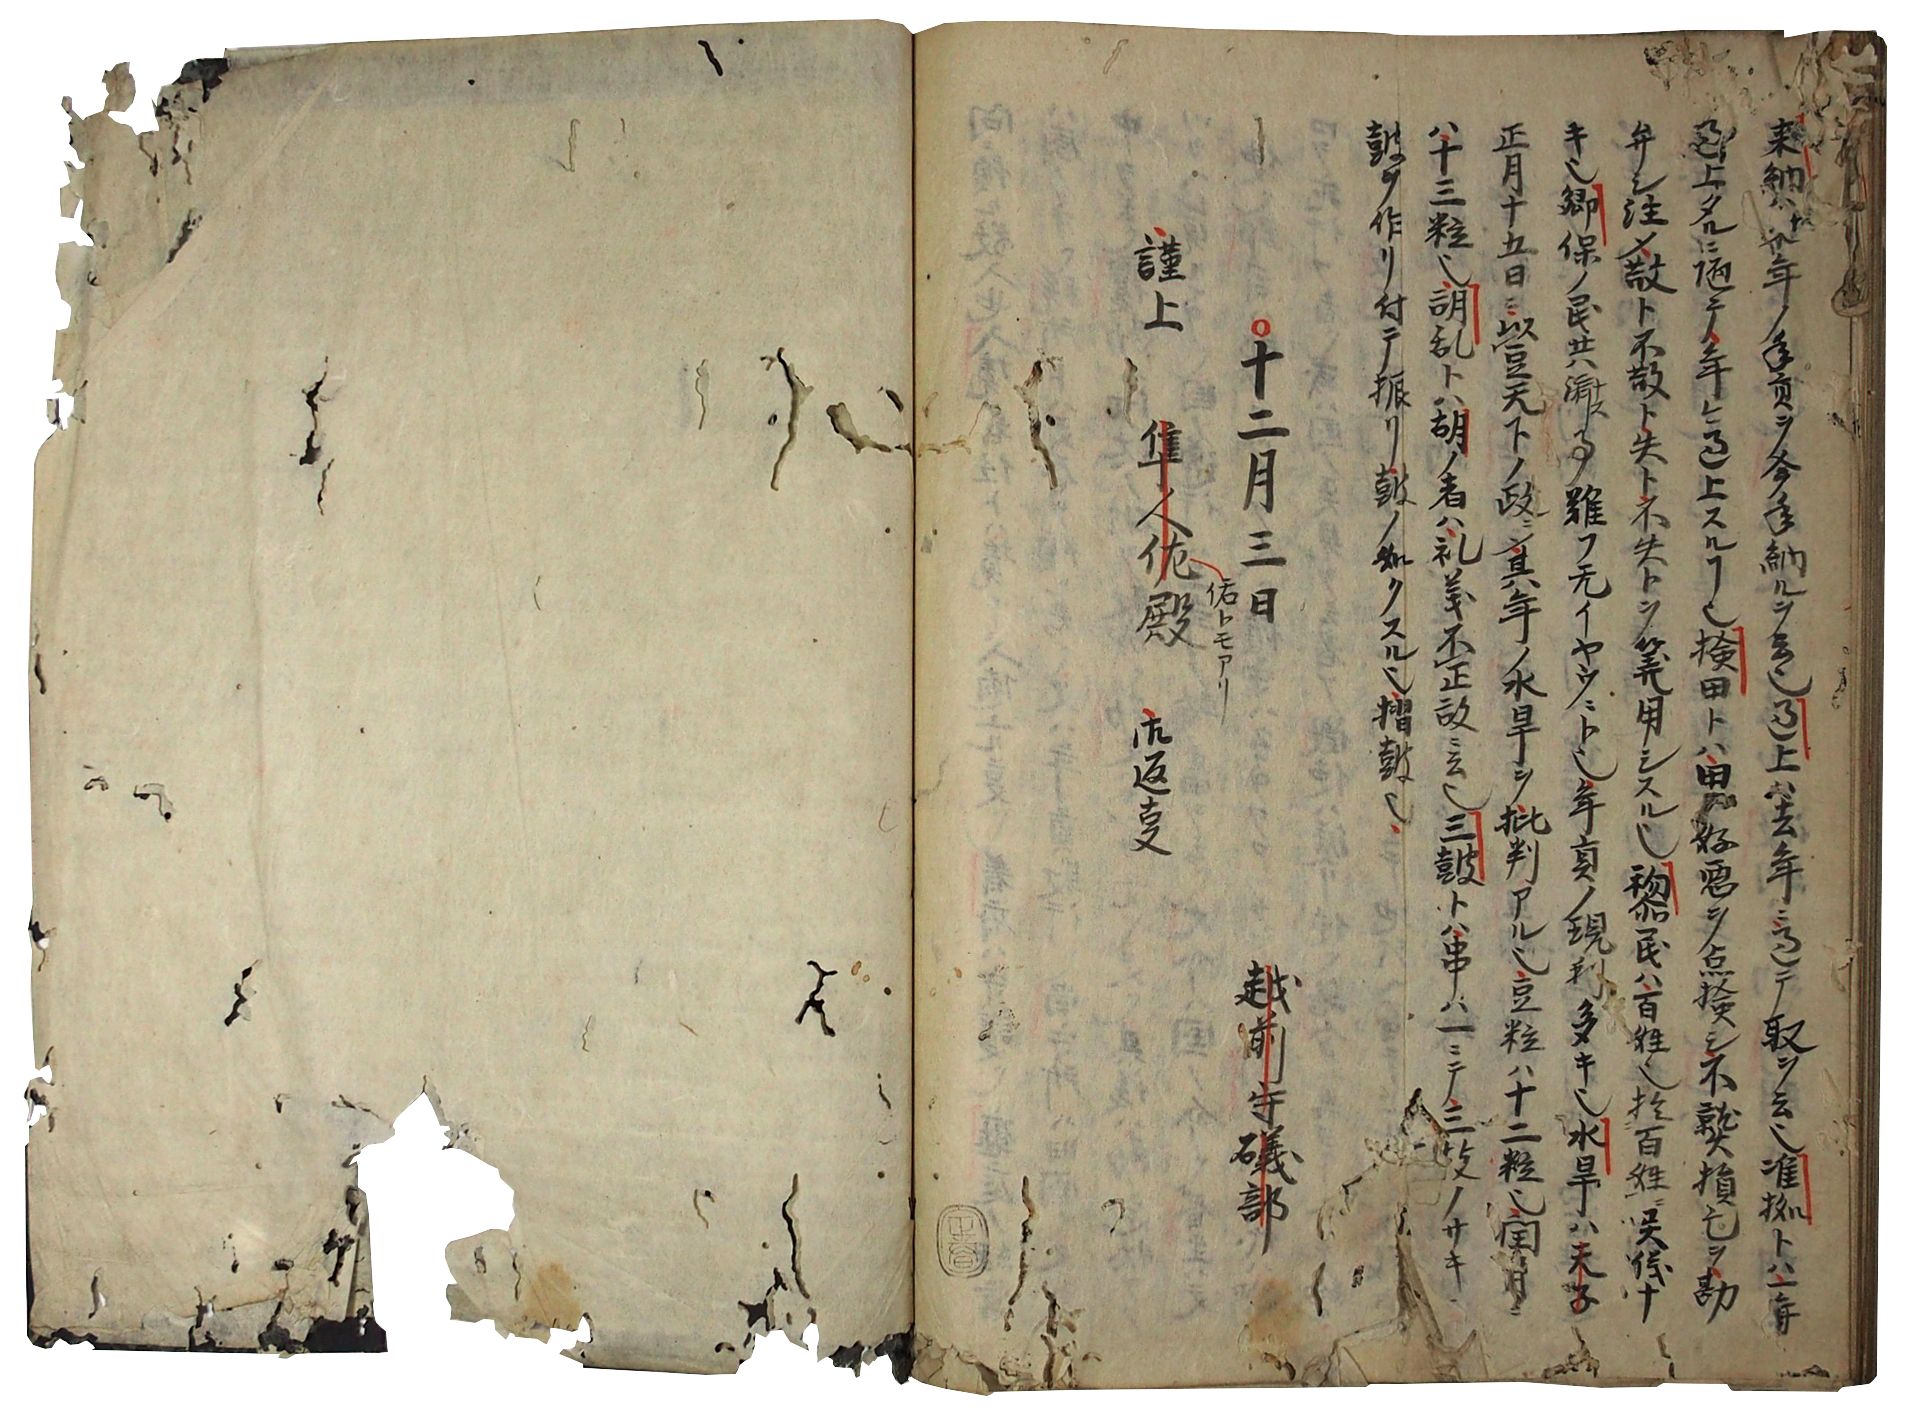 来納ハ 年ノ年貢ヲ今年納ルヲ云也過上ハ去年ニ過テ取ヲ云也准拠トハ一年
過上タルニ 年ヲ過上スル也検田トハ田 好悪ヲ点検シ不熟損亡ヲ勘
弁シ注メ散ト不散ト失ト不失トヲ算用シスル也黎民ハ百姓也 百姓
キ也郷保ノ民共ハ 難フ无イヤウニト也年貢ノ現利多キ也水旱ハ天子
正月十五日ニ以豆天下ノ政ニ其年ノ水旱ヲ批判アル也豆粒ハ十二粒也閏月ニ
ハ十三粒也胡乱トハ胡ノ者ハ礼義不正故ニ云也三鼓トハ串ハ一ニテ三 ノサキニ
鼓ヲ作リ付テ振リ鼓ノ如クスル也摺鼓也
十二月三日 越前守礒部
謹上 隼人佐殿 御返事
佑トモアリ